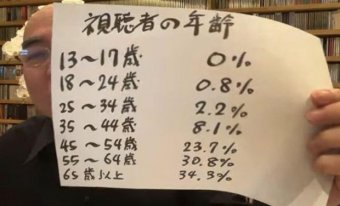 視聴者の年齢
13〜17歳 0%
18〜24歳 0.8%
25〜34歳 2.2%
35〜44歳 8.1%
45〜54歳 23.7%
55〜64歳 30.8%
65歳以上 34.3%